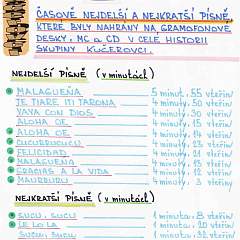 ČASOVĚ NEJDELŠÍ A NEJKRATŠÍ PÍSNĚ,
KTERÉ BYLY NAHRÁNY NA GRAMOFONOVÉ
DESKY, MC a CD V CELÉ HISTORII
SKUPINY KUČEROVCI.
NEJDELŠÍ PÍSNĚ (v minutách)
MALAGUEŇA 5 minut, 55 vteřin
JE TIARE ITI TARONA 4 minuty, 30 vteřin
VAYA CON DIOS 4 minuty, 30 vteřin
ALOHA OE 4 minuty, 15 vteřin
ALOHA OE 4 minuty, 14 vteřin
CUCURRUCUCU 4 minuty, 13 vteřin
FELICIDAD 4 minuty, 13 vteřin
MALAGUENA 4 minuty, 12 vteřin
GRACIAS A LA VIDA 4 minuty, 12 vteřin
MAURUURU 4 minuty, 3 vteřiny
NEJKRATŠÍ PÍSNĚ (v minutách)
SUCU, SUCU 1 minuta, 8 vteřin
LE LO LA 1 minuta, 20 vteřin
SUCU, SUCU 1 minuta, 32 vteřin